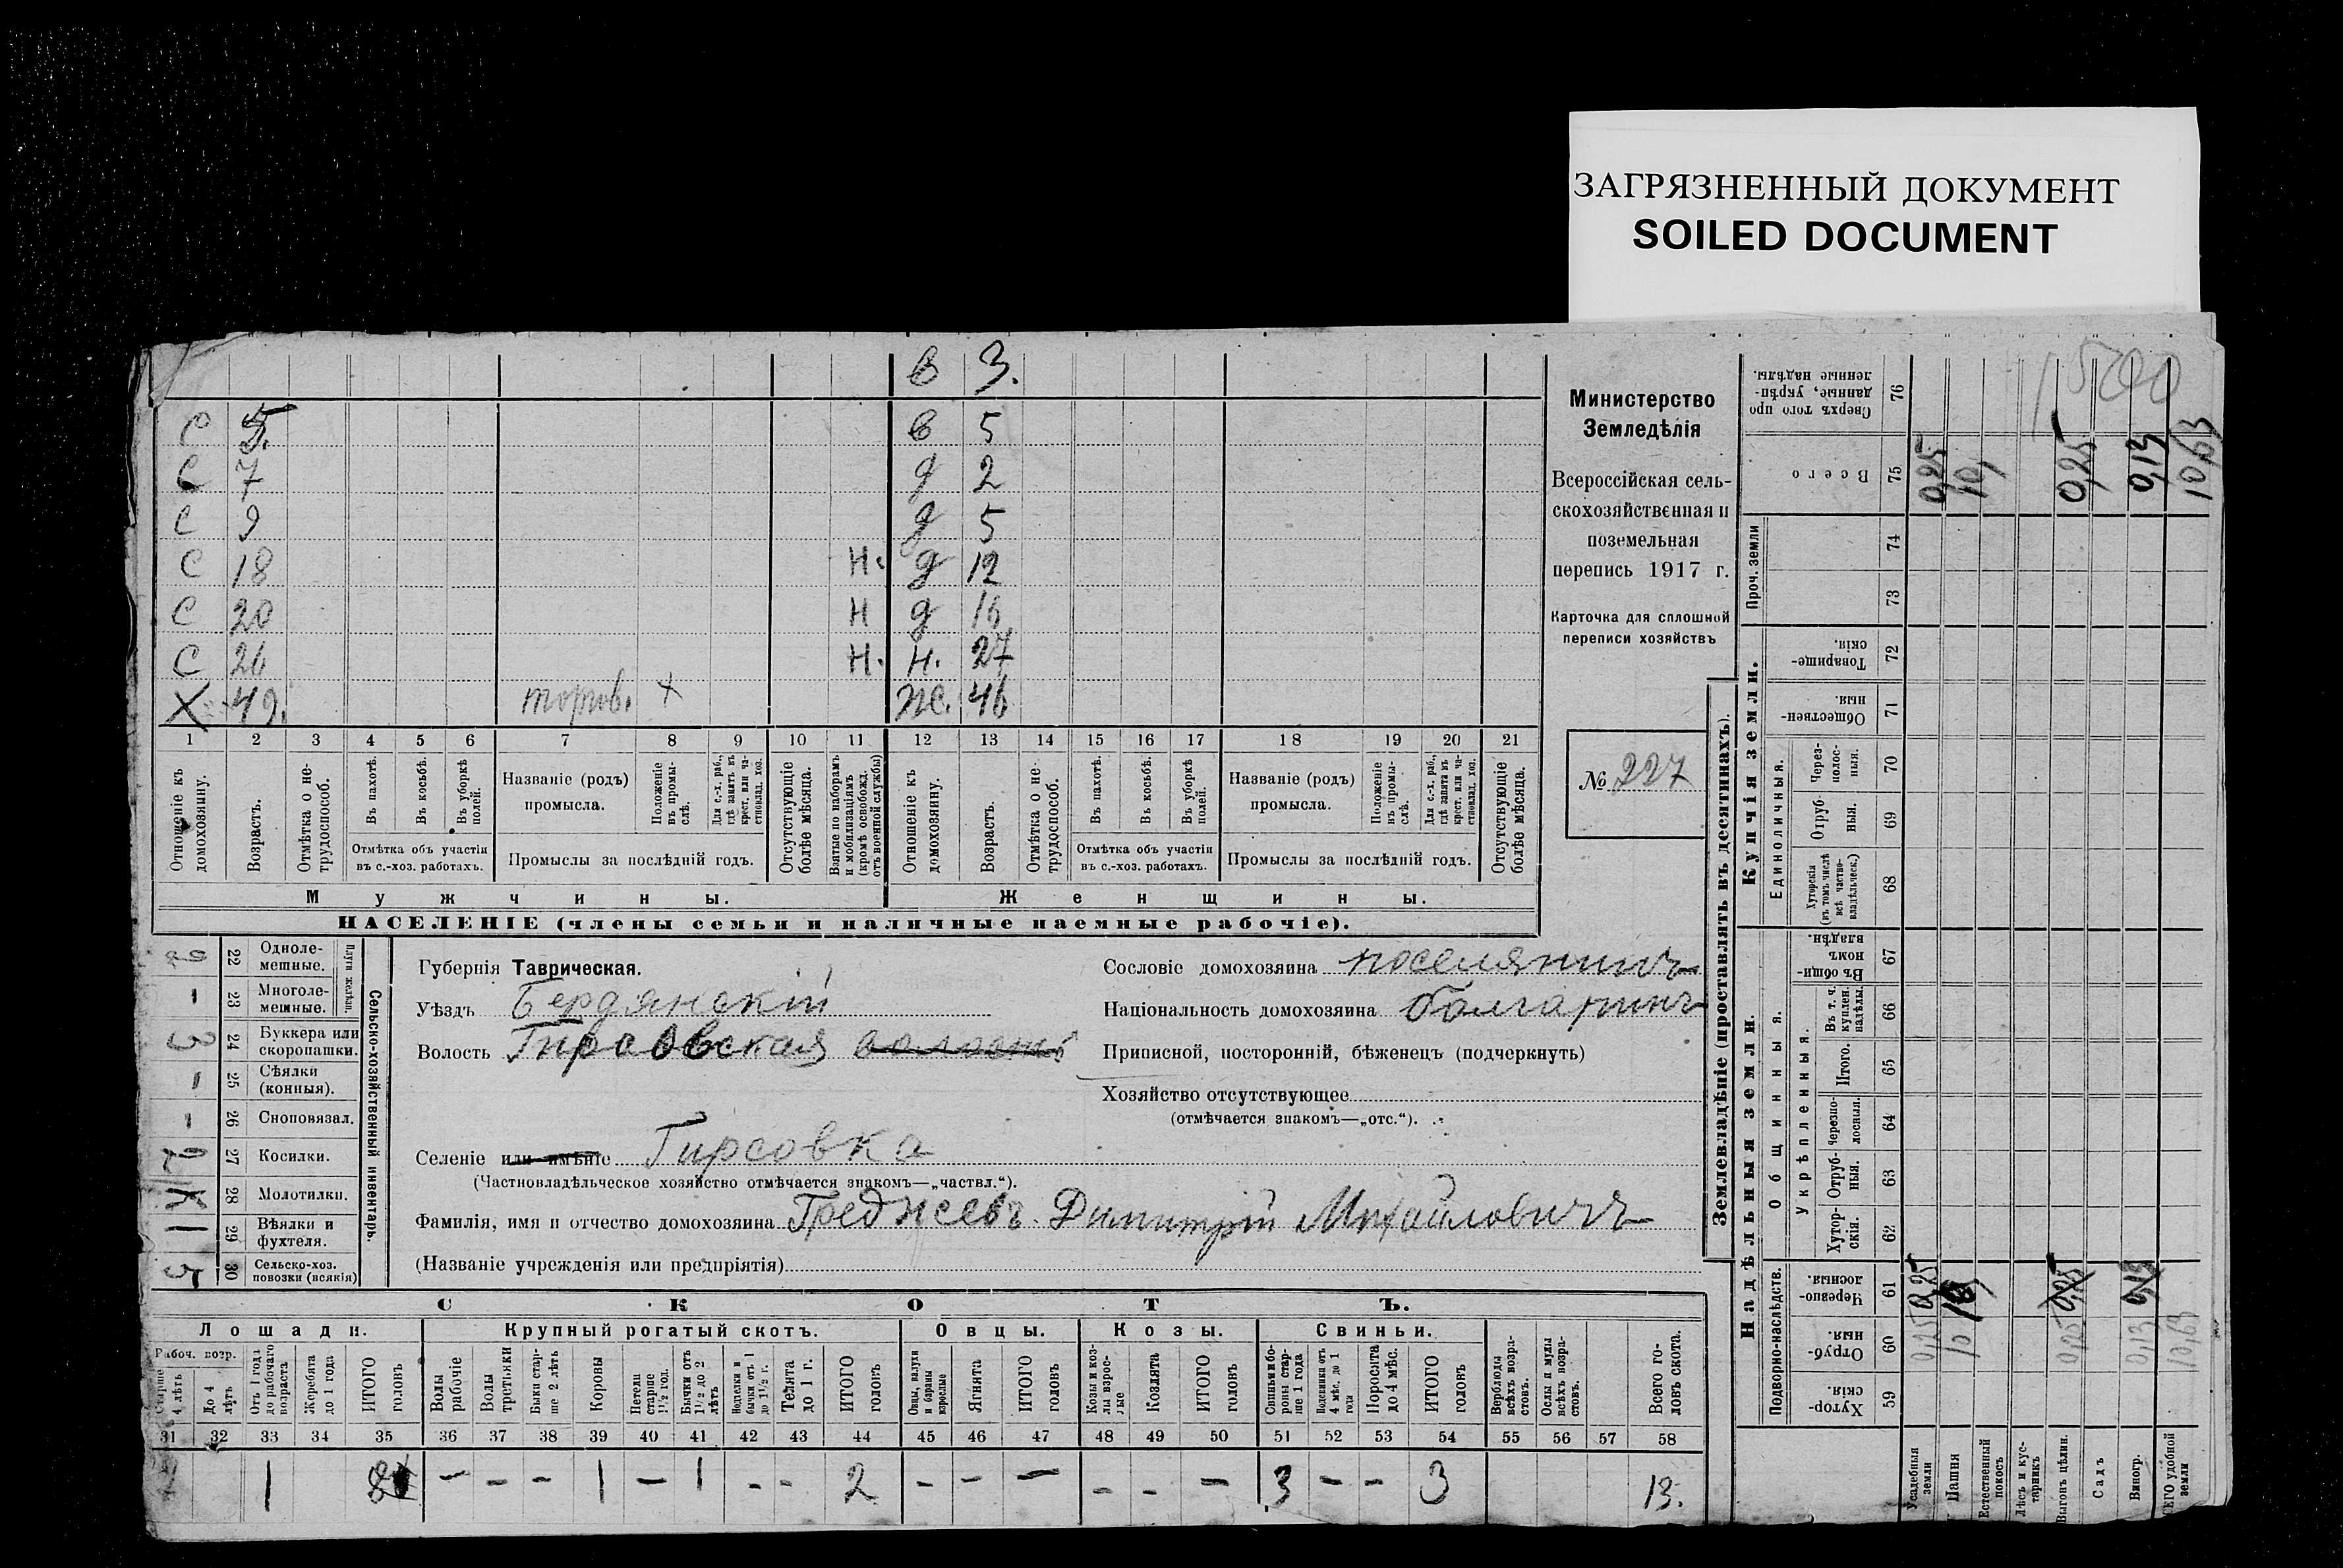 ЗАГРЯЗНЕННЫЙ ДОКУМЕНТ
SOILED DOCUMENT
в 3.
С 5. в 5
С 7 д 2
С 9 д 5
С 18 Н. д 12
С 20 Н д 16
С 26 Н. Н. 27
Х 49. торгов. + ж. 46
1 2 3 4 5 6 7 8 9 10 11 12 13 14 15 16 17 18 19 20 21
Отношеніе къ домохозяину.
Возрастъ.
Отмѣтка о нетрудоспособ.
Въ пахотѣ.
Въ косьбѣ.
Въ уборкѣ полей.
Отмѣтка объ участіи въ с.-хоз. работахъ.
Названіе (родъ) промысла.
Положеніе въ промыслѣ.
Для с.-х. раб., гдѣ занятъ въ крест. или частновлад. хоз.
Промыслы за послѣдній годъ.
Отсутствующіе болѣе мѣсяца.
Взятые по наборамъ и мобилизаціямъ (кромѣ освобожд. отъ военной службы)
Отношеніе къ домохозяину.
Возрастъ.
Отмѣтка о нетрудоспособ.
Въ пахотѣ.
Въ косьбѣ.
Въ уборкѣ полей.
Отмѣтка объ участіи въ с.-хоз. работахъ.
Названіе (родъ) промысла.
Положеніе въ промыслѣ.
Для с.-х. раб., гдѣ занятъ въ крест. или частновлад. хоз.
Промыслы за послѣдній годъ.
Отсутствующіе болѣе мѣсяца.
Мужчины. Женщины.
НАСЕЛЕНІЕ (члены семьи и наличные наемные рабочіе).
Министерство
Земледѣлія
Всероссійская сель-
скохозяйственная и
поземельная
перепись 1917 г.
Карточка для сплошной
переписи хозяйствъ
№ 227
Сельско-хозяйственный инвентарь.
Плуги желѣзн.
22 Одноле-
мешные.
– 23 Многоле-
мешные.
3 24 Буккера или
скоропашки.
– 25 Сѣялки
(конныя).
– 26 Сноповязал.
27 Косилки.
28 Молотилки.
1 29 Вѣялки и
фухтеля.
5 30 Сельско-хоз.
повозки (всякія)
Губернія Таврическая.
Уѣздъ Бердянскій
Волость Гирсовская волость
Селеніе или имѣніе Гирсовка
(Частновладѣльческое хозяйство отмѣчается знакомъ—„частвл.“).
Фамилія, имя и отчество домохозяина Греджевъ Димитрій Михайловичъ
(Названіе учрежденія или предпріятія)
Сословіе домохозяина поселянинъ
Національность домохозяина болгаринъ
Приписной, посторонній, бѣженецъ (подчеркнуть)
Хозяйство отсутствующее
(отмѣчается знакомъ—„отс.“).
СКОТЪ.
Лошади. Крупный рогатый скотъ. Овцы. Козы. Свиньи.
Рабоч. возр.
Старше 4 лѣтъ
До 4 лѣтъ
Отъ 1 года до рабочаго возраста
Жеребята до 1 года
ИТОГО головъ
Волы рабочіе
Волы третьяки
Быки старше 2 лѣтъ
Коровы
Нетели старше 1½ год.
Бычки отъ 1½ до 2 лѣтъ
Нетелки и бычки отъ 1 до 1½ г.
Телята до 1 г.
ИТОГО головъ
Овцы, валухи и бараны взрослые
Ягнята
ИТОГО головъ
Козы и козлы взрослые
Козлята
ИТОГО головъ
Свиньи и боровы старше 1 года
Подсвинки отъ 4 мѣс. до 1 года
Поросята до 4 мѣс.
ИТОГО головъ
Верблюды всѣхъ возрастовъ.
Ослы и мулы всѣхъ возрастовъ.
Всего головъ скота.
31 32 33 34 35 36 37 38 39 40 41 42 43 44 45 46 47 48 49 50 51 52 53 54 55 56 57 58
1 8 – – – 1 – 1 – – 2 – – – – – – 3 – – 3 13.
Землевладѣніе (проставлять въ десятинахъ).
Надѣльныя земли. Купчія земли.
Подворно-наслѣдств.
Общинныя.
Укрѣпленныя.
Единоличныя.
Проч. земли
59 Хуторскія.
60 Отрубныя.
61 Черезполосныя.
62 Хуторскія.
63 Отрубныя.
64 Черезполосныя.
65 Итого.
66 Въ т. ч. куплен. надѣлы.
67 Въ общинномъ владѣн.
68 Хуторскія (въ томъ числѣ всѣ частновладѣльческ.)
69 Отрубныя.
70 Черезполосныя.
71 Общественныя.
72 Товарищескія.
73
74
75 Всего
76 Сверхъ того проданные, укрѣпленные надѣлы.
1500
Усадебныя земли 0,25 0,25 0,25
Пашня 10 10 10,
Естественный покосъ
Лѣсъ и кустарникъ
Выгонъ цѣлин. 0,25 0,25 0,25
Садъ
Виногр. 0,13 0,13 0,13
ВСЕГО удобной земли 10,63 10,63